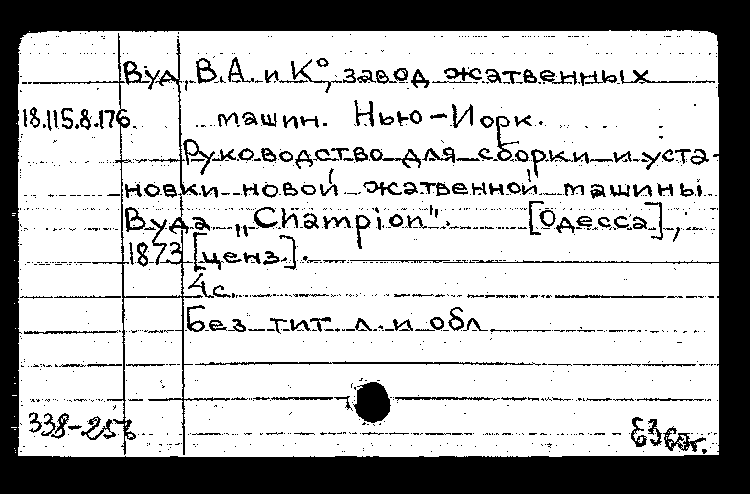 Вуд, В.А. и К°, завод жатвенных
18.115.8.176 машин. Нью-Иорк.
Руководство для сборки и уста-
новки новой жатвенной машины
Вуда „Champion". [Одесса],
1873 [ценз.].
4 с.
Без тит. л. и обл.
338-25